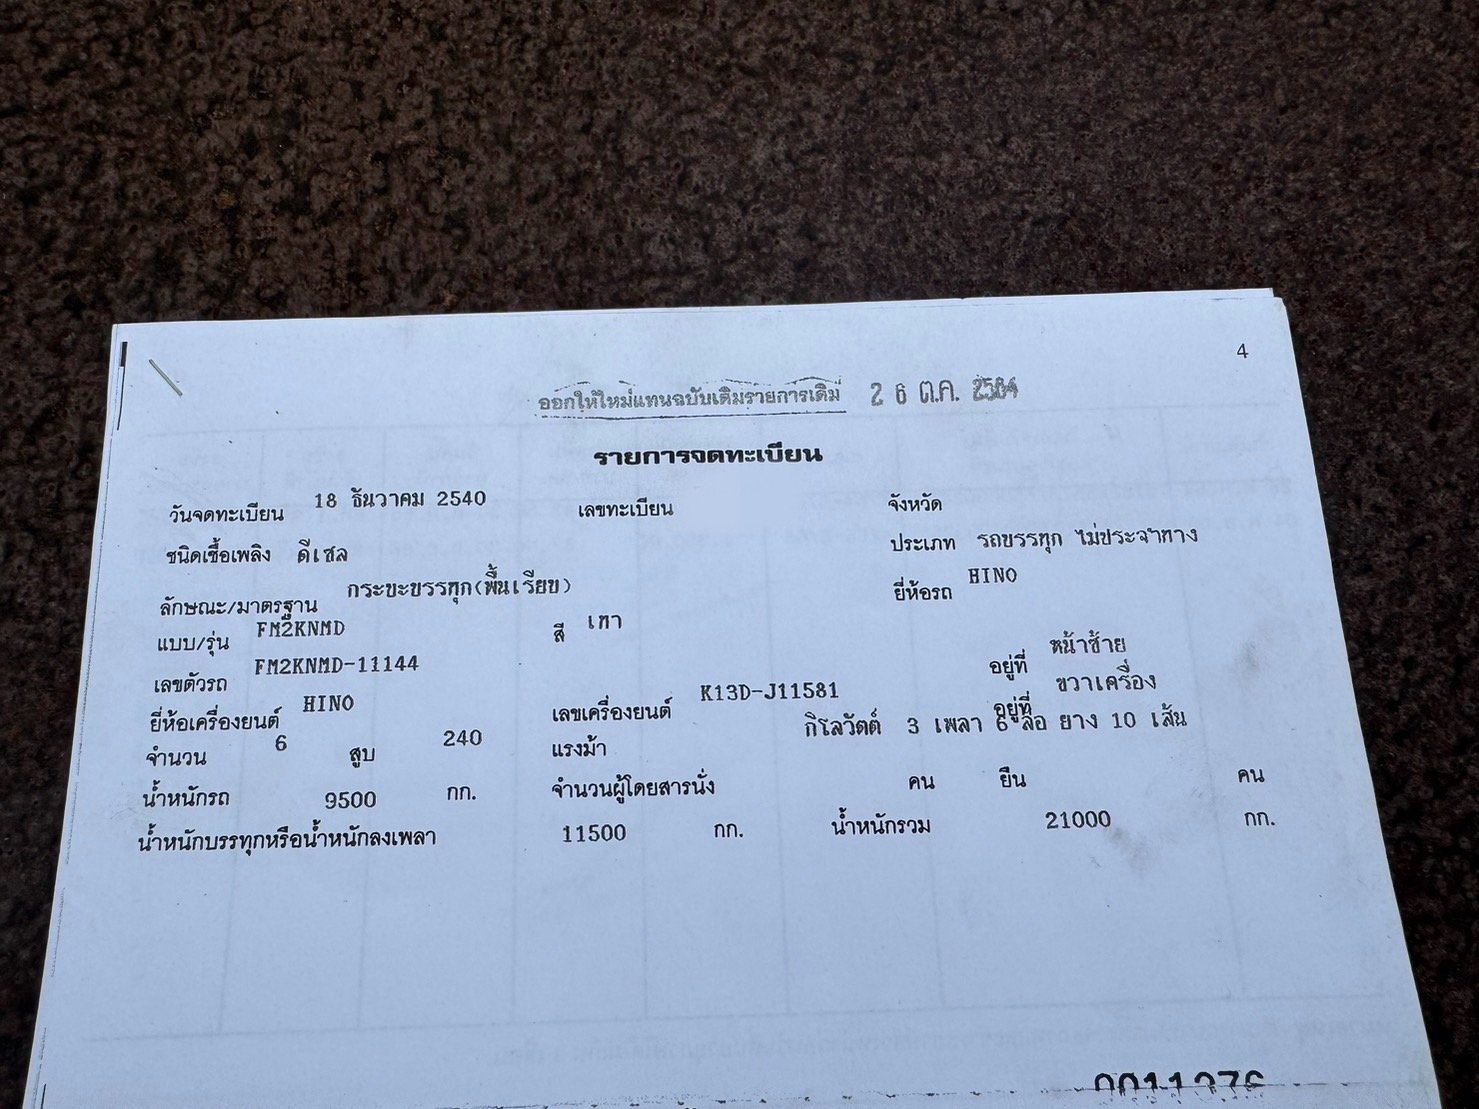 4
ออกให้ใหม่แทนฉบับเดิมรายการเดิม 26 ต.ค. 2564
รายการจดทะเบียน
วันจดทะเบียน 18 ธันวาคม 2540 เลขทะเบียน จังหวัด
ชนิดเชื้อเพลิง ดีเซล ประเภท รถบรรทุก ไม่ประจำทาง
ลักษณะ/มาตรฐาน กระบะบรรทุก(พื้นเรียบ) ยี่ห้อรถ HINO
แบบ/รุ่น FM2KNMD สี เทา
เลขตัวรถ FM2KNMD-11144 อยู่ที่ หน้าซ้าย
ยี่ห้อเครื่องยนต์ HINO เลขเครื่องยนต์ K13D-J11581 อยู่ที่ ขวาเครื่อง
จำนวน 6 สูบ 240 แรงม้า กิโลวัตต์ 3 เพลา 6 ล้อ ยาง 10 เส้น
น้ำหนักรถ 9500 กก. จำนวนผู้โดยสารนั่ง คน ยืน คน
น้ำหนักบรรทุกหรือน้ำหนักลงเพลา 11500 กก. น้ำหนักรวม 21000 กก.